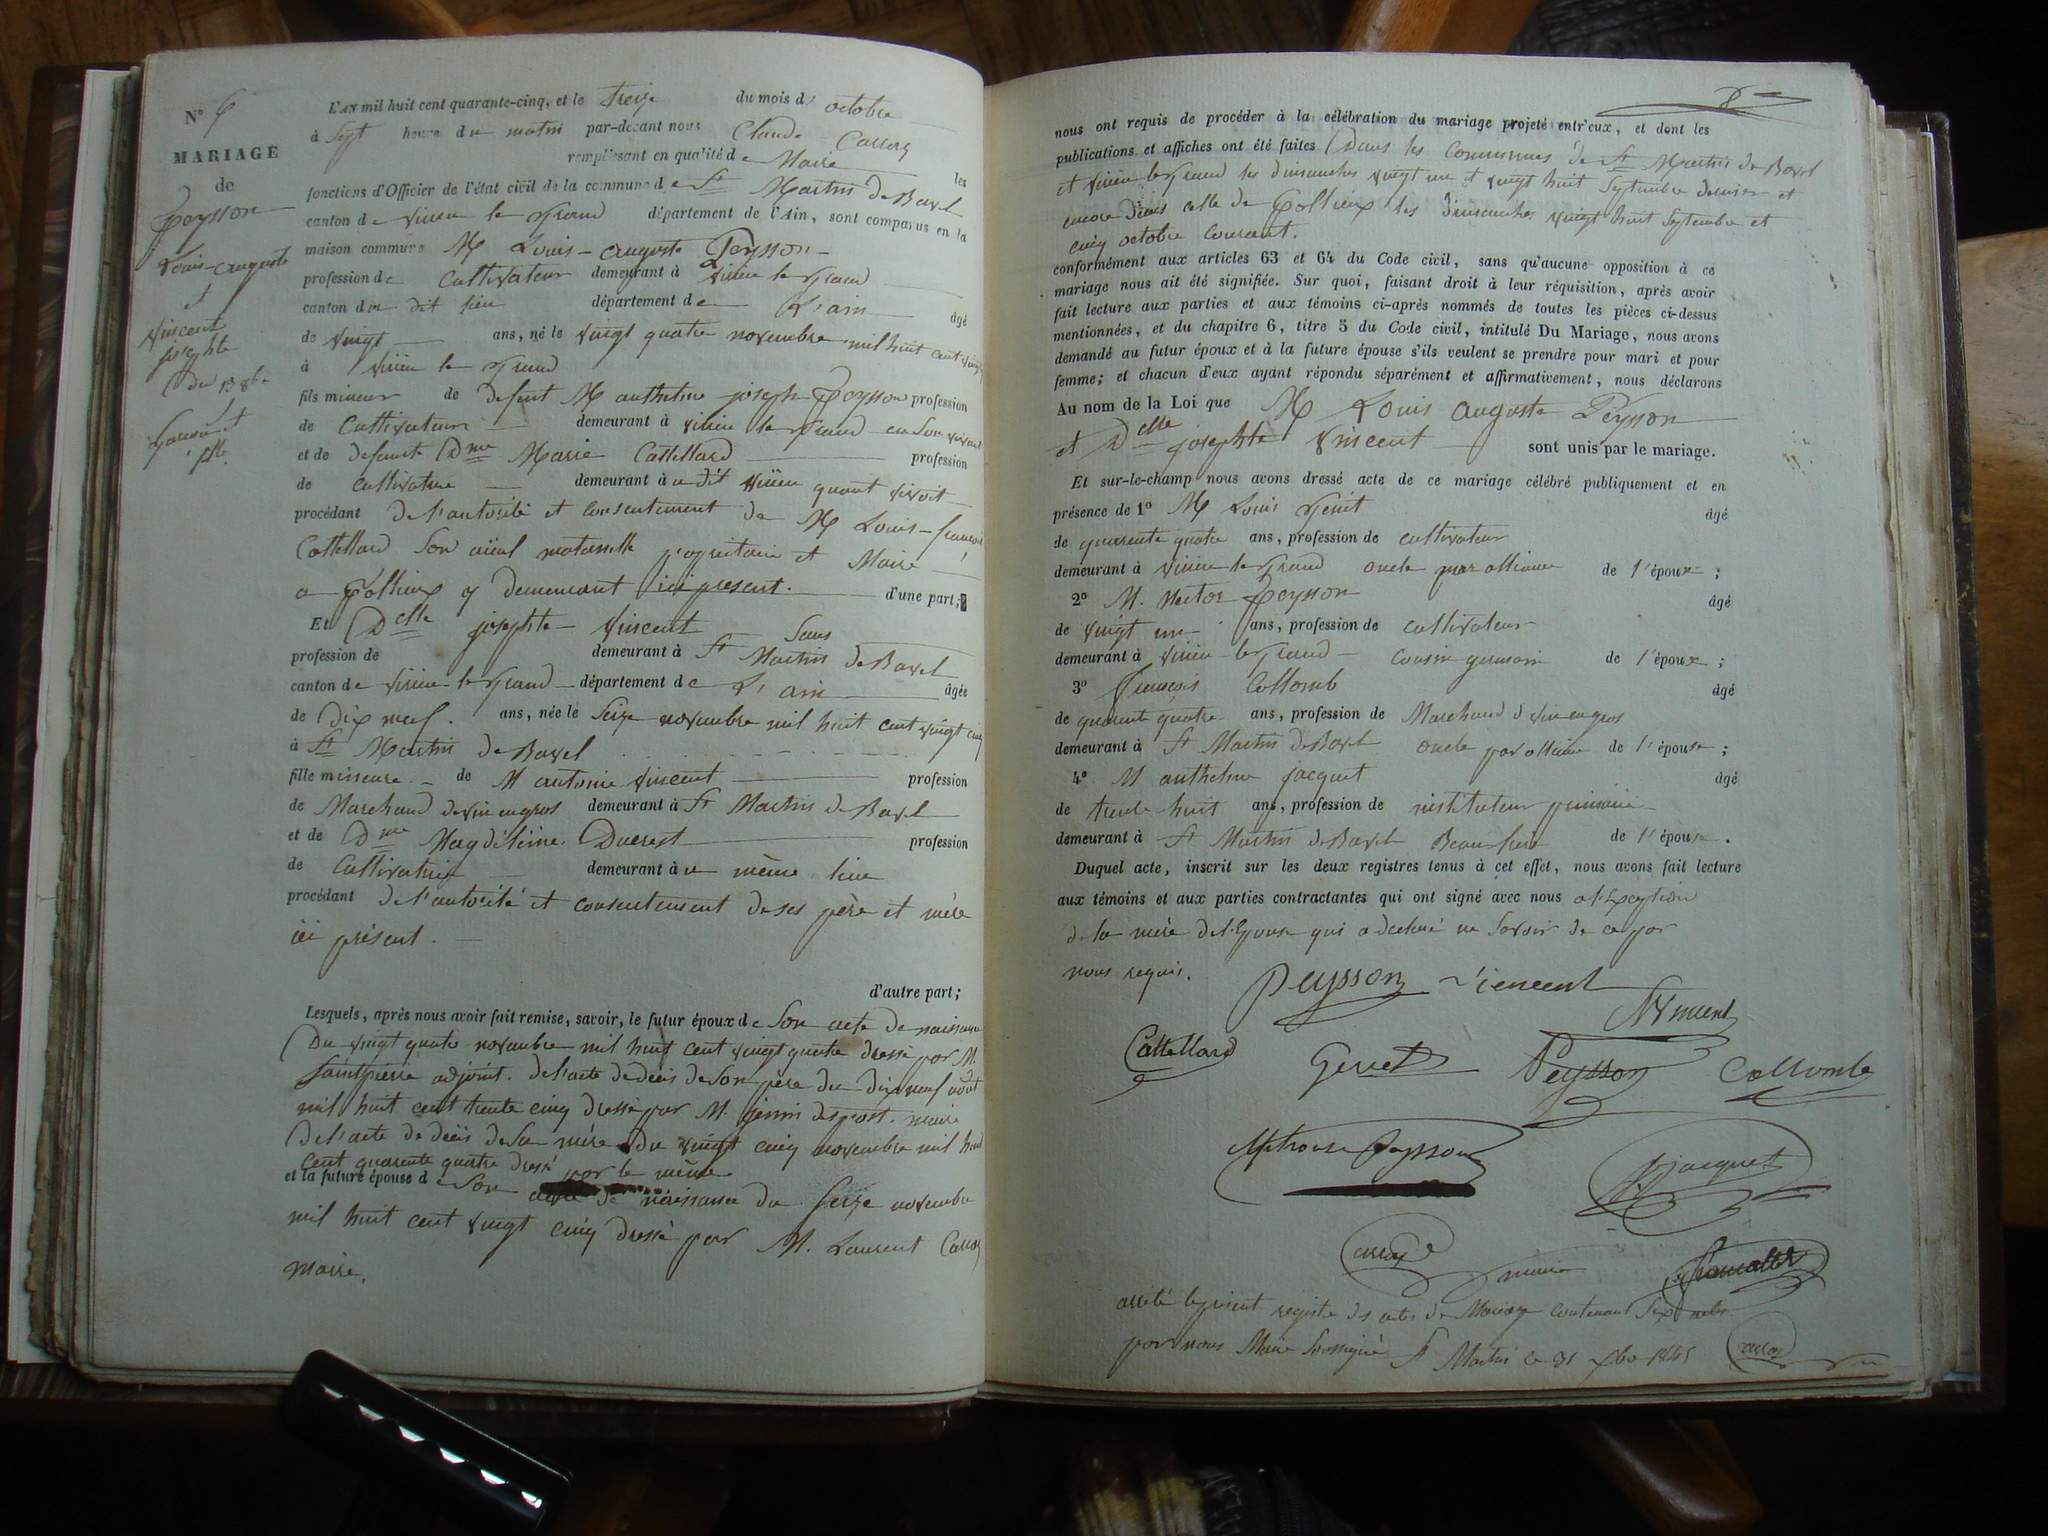 N° 6
MARIAGE
de
Peysson
Louis-auguste
et
Vincent
josephte
Du 13 8bre
L'AN mil huit cent quarante-cinq, et le treize du mois d' octobre
à sept heure du matin par-devant nous Claude
remplissant en qualité de Maire les
fonctions d'Officier de l'état civil de la commune de St Martin de Bavel
canton de Virieu le Grand département de l'Ain, sont comparus en la
maison commune M Louis-auguste Peysson
profession de Cultivateur demeurant à Virieu le Grand
canton du dit lieu département de L'ain âgé
de vingt ans, né le vingt quatre novembre mil huit cent vingt
à Virieu le Grand
fils mineur de defunt M anthelme joseph Peysson profession
de Cultivateur demeurant à Virieu le Grand en son vivant
et de defunte Dme Marie Cattellard profession
de cultivatrice demeurant à u dit Virieu quant vivoit
procédant de l'autorité et consentement de M Louis-françois
Cattellard son aïeul maternelle propriétaire et Maire
a Pollieux y demeurant ici present. d'une part;
Et Delle josephte Vincent
profession de Sans demeurant à St Martin de Bavel
canton de Virieu-le-Grand département de L'ain âgée
de Dix neuf. ans, née le seize novembre mil huit cent vingt cinq
à St Martin de Bavel
fille mineure de M antoine Vincent profession
de Marchand de vin en gros demeurant à St Martin de Bavel
et de Dme Magdeleine Ducrest profession
de Cultivatrice demeurant à u même lieu
procédant de l'autorité et consentement de ses père et mère
ici présent.
d'autre part;
Lesquels, après nous avoir fait remise, savoir, le futur époux de son acte de naissance
Du vingt quatre novembre mil huit cent vingt quatre dressé par M.
Saintpierre adjoint. de l'acte de décès de son père du dix neuf août
mil huit cent trente cinq dressé par M. maire
De l'acte de décès de sa mère du vingt cinq novembre mil huit
cent quarante quatre dressé par le même
et la future épouse de son acte de naissance du seize novembre
mil huit cent vingt cinq dressé par M. Laurent
maire.
nous ont requis de procéder à la célébration du mariage projeté entr'eux, et dont les
publications et affiches ont été faites Dans les communes de St Martin de Bavel
et Virieu le Grand les dimanches vingt un et vingt huit Septembre dernier et
encore dans celle de Pollieux les dimanches vingt huit Septembre et
cinq octobre courant.
conformément aux articles 63 et 64 du Code civil, sans qu'aucune opposition à ce
mariage nous ait été signifiée. Sur quoi, faisant droit à leur réquisition, après avoir
fait lecture aux parties et aux témoins ci-après nommés de toutes les pièces ci-dessus
mentionnées, et du chapitre 6, titre 5 du Code civil, intitulé Du Mariage, nous avons
demandé au futur époux et à la future épouse s'ils veulent se prendre pour mari et pour
femme; et chacun d'eux ayant répondu séparément et affirmativement, nous déclarons
Au nom de la Loi que M Louis auguste Peysson
et Delle josephte Vincent sont unis par le mariage.
Et sur-le-champ nous avons dressé acte de ce mariage célébré publiquement et en
présence de 1° M Louis Genet âgé
de quarente quatre ans, profession de cultivateur
demeurant à Virieu le Grand oncle par alliance de l'époux;
2° M. Hector Peysson âgé
de vingt un ans, profession de cultivateur
demeurant à Virieu le Grand cousin germain de l'époux;
3° françois Collomb âgé
de quarente quatre ans, profession de Marchand de vin en gros
demeurant à St Martin de Bavel oncle par alliance de l'épouse;
4° M anthelme jacquet âgé
de trente-huit ans, profession de instituteur primaire
demeurant à St Martin de Bavel Beau frère de l'épouse.
Duquel acte, inscrit sur les deux registres tenus à cet effet, nous avons fait lecture
aux témoins et aux parties contractantes qui ont signé avec nous a l'Exception
de la mère de l'Epouse qui a déclaré ne savoir de ce par
nous requis.
Peysson Vincent
Vincent
Cattellard Genet Peysson Collomb
Alphonse Peysson Jacquet
maire
arrêté le présent registre des actes de Mariage contenant Six actes
par nous Maire Soussigné St Martin le 31 Xbre 1845